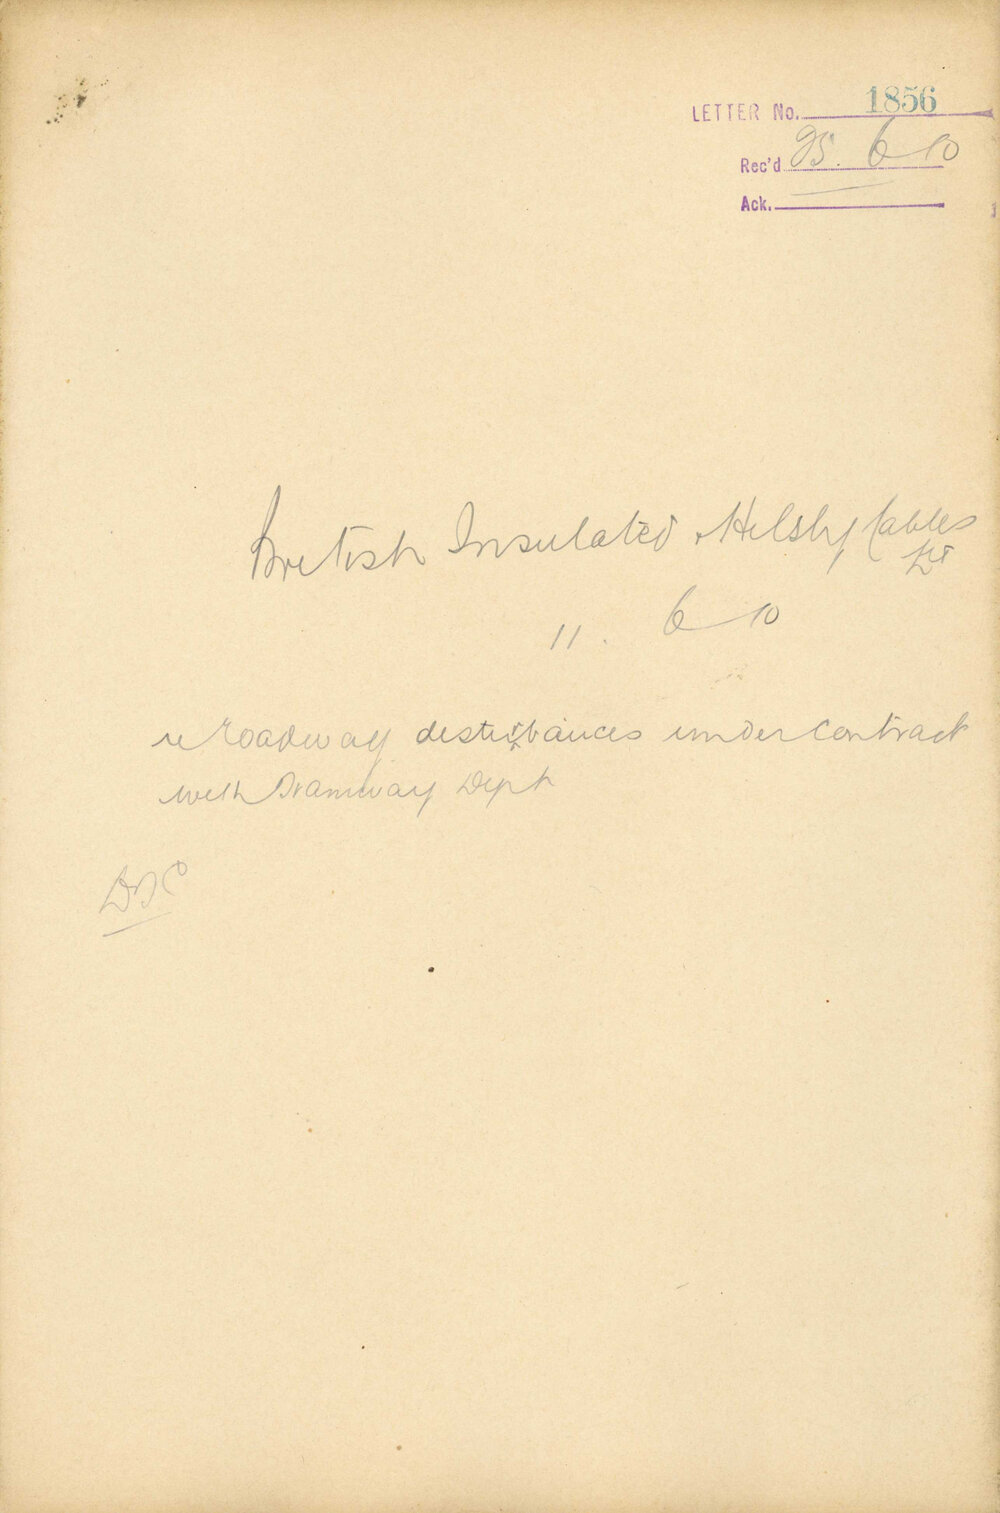 LETTER No. 1856
Rec'd 25. 6 10
Ack.
British Insulated & Helsby Cables
Ld
11. 6 10
re Roadway disturbances under contract
with Tramway Dept